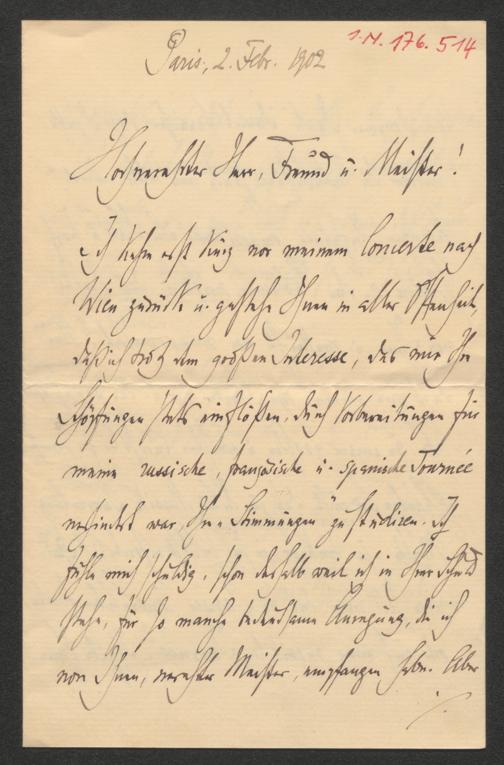 I.N. 176.514
Paris, 2. Febr. 1902
Hochverehrter Herr, Freund u. Meister!
Ich kehre erst kurz vor meinem Concerte nach
Wien zurück u. gestehe Ihnen in aller Offenheit,
daß ich trotz dem großen Interesse, das mir Ihre
Schöpfungen stets einflößen, durch Vorbereitungen für
meine russische, französische u. spanische Tournée
verhindert war, Ihre „Stimmungen" zu studiren. Ich
fühle mich schuldig, schon deshalb weil ich in Ihrer Schuld
stehe, für so manche bedeutsame Anregung, die ich
von Ihnen, verehrter Meister, empfangen habe. Aber